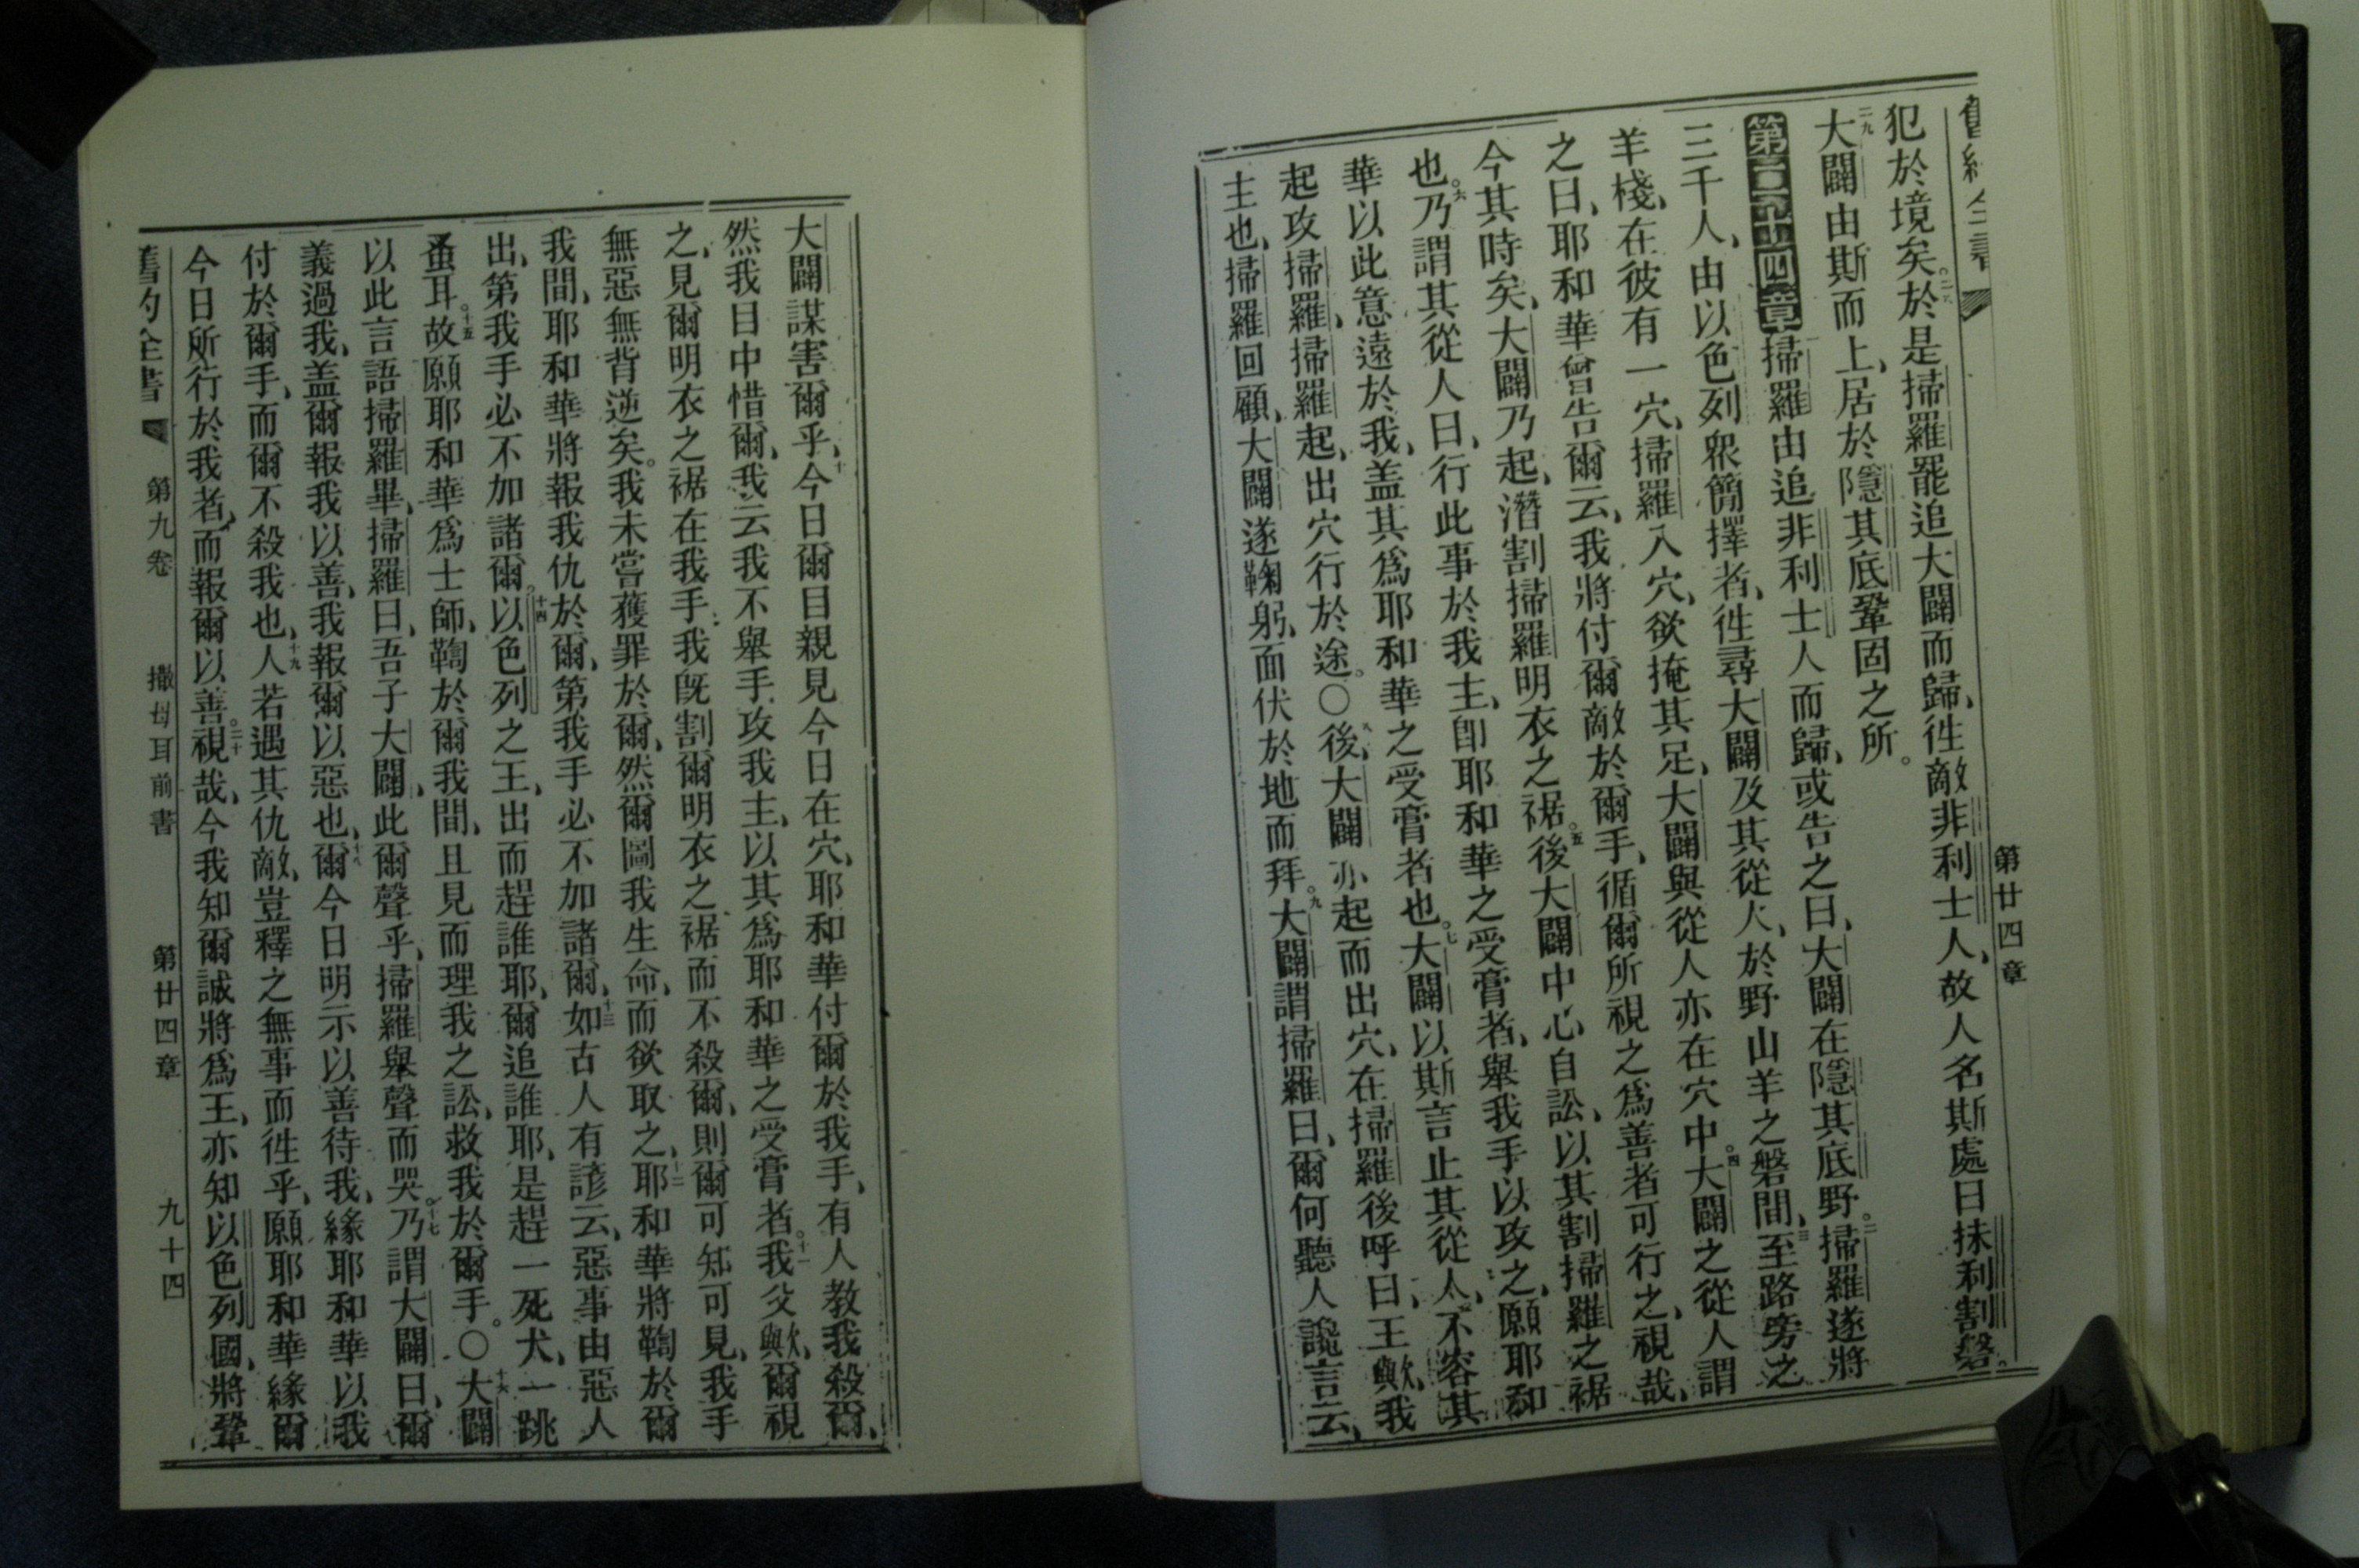 第廿四章
犯於境矣。於是掃羅罷追大闢而歸、徃敵非利士人、故人名斯處曰抹利割磐。
二九大闢由斯而上、居於隱其底鞏固之所。
第二十四章掃羅由追非利士人而歸、或告之曰、大闢在隱其底野。二掃羅遂將
三千人、由以色列衆簡擇者、徃尋大闢及其從人、於野山羊之磐間、三至路旁之
羊棧、在彼有一穴、掃羅入穴、欲掩其足、大闢與從人亦在穴中。四大闢之從人謂
之曰、耶和華曾告爾云、我將付爾敵於爾手、循爾所視之爲善者可行之、視哉、
今其時矣、大闢乃起、潛割掃羅明衣之裾。五後大闢中心自訟、以其割掃羅之裾
也。六乃謂其從人曰、行此事於我主、卽耶和華之受膏者、舉我手以攻之、願耶和
華以此意遠於我、盖其爲耶和華之受膏者也。七大闢以斯言止其從人、不容其
起攻掃羅、掃羅起、出穴行於途。〇八後、大闢亦起而出穴、在掃羅後呼曰、王歟、我
主也、掃羅回顧、大闢遂鞠躬、面伏於地而拜。九大闢謂掃羅曰、爾何聽人讒言云、
大闢謀害爾乎、十今日爾目親見今日在穴、耶和華付爾於我手、有人教我殺爾、
然我目中惜爾、我云我不舉手攻我主、以其爲耶和華之受膏者。十一我父歟、爾視
之、見爾明衣之裾在我手、我旣割爾明衣之裾而不殺爾、則爾可知可見、我手
無惡無背逆矣。我未嘗獲罪於爾、然爾圖我生命、而欲取之、十二耶和華將鞫於爾
我間、耶和華將報我仇於爾、第我手必不加諸爾、十三如古人有諺云、惡事由惡人
出、第我手必不加諸爾。十四以色列之王、出而趕誰耶、爾追誰耶、是趕一死犬、一跳
蚤耳。十五故願耶和華爲士師、鞫於爾我間、且見而理我之訟、救我於爾手。〇十六大闢
以此言語掃羅畢、掃羅曰、吾子大闢、此爾聲乎、掃羅舉聲而哭。十七乃謂大闢曰、爾
義過我、盖爾報我以善、我報爾以惡也、十八爾今日明示以善待我、緣耶和華以我
付於爾手、而爾不殺我也、十九人若遇其仇敵、豈釋之無事而徃乎、願耶和華緣爾
今日所行於我者、而報爾以善。二十視哉、今我知爾誠將爲王、亦知以色列國、將鞏
舊約全書 第九卷 撒母耳前書 第廿四章 九十四